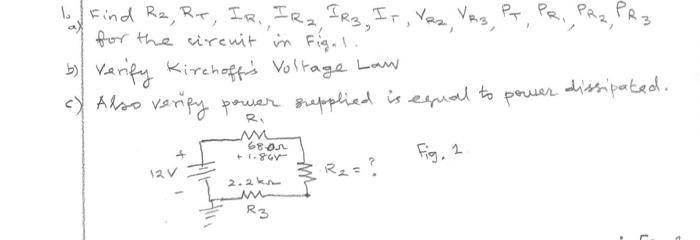 1.
a) Find R2, RT, IR1, IR2, IR3, IT, VR2, VR3, PT, PR1, PR2, PR3
for the circuit in Fig. 1.
b) Verify Kirchoff's Voltage Law
c) Also verify power supplied is equal to power dissipated.
R1
680Ω
+ 1.86V -
12V
+
-
R2 = ?
Fig. 1
2.2kΩ
R3